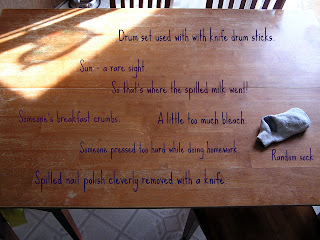 Drum set used with with knife drum sticks.
Sun - a rare sight
So that's where the spilled milk went!
Someone's breakfast crumbs.
A little too much bleach.
Someone pressed too hard while doing homework
Random sock
Spilled nail polish cleverly removed with a knife